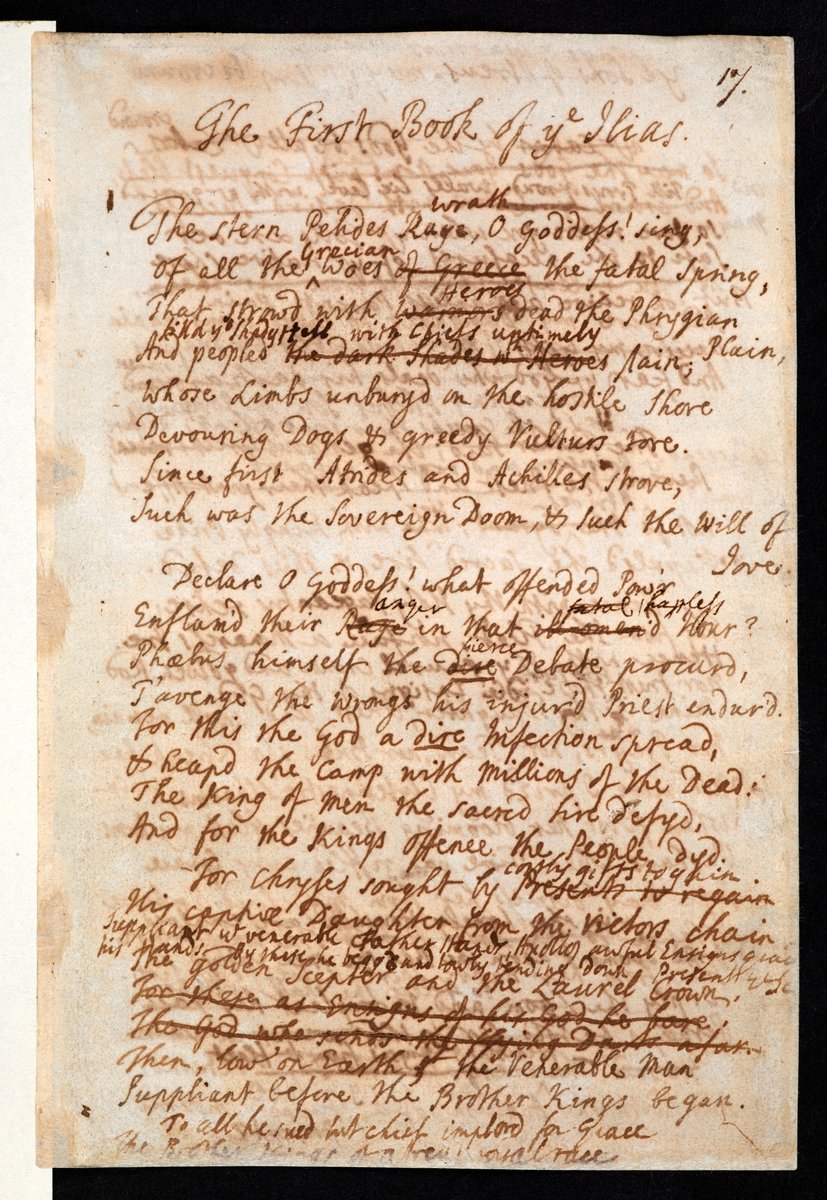 17.
The First Book of yᵉ Ilias.
wrath
The stern Pelides Rage, O Goddess! sing,
Grecian
Of all the woes of Greece the fatal Spring,
Heroes
That strow'd with warriors dead the Phrygian Plain,
with Chiefs untimely
And peopled the dark Shades wth Heroes slain;
Whose Limbs unbury'd on the hostile Shore
Devouring Dogs & greedy Vulturs tore.
Since first Atrides and Achilles strove,
Such was the Sovereign Doom, & Such the Will of Jove.
Declare O Goddess! what offended Pow'r
anger fatal hapless
Enflam'd their Rage in that ill-omen'd Hour?
fierce
Phœbus himself the dire Debate procur'd,
T'avenge the wrongs his injur'd Priest endur'd.
For this the God a dire Infection spread,
& heap'd the Camp with Millions of the Dead:
The King of Men the sacred Sire defy'd,
And for the Kings offence the People dy'd.
costly gifts to gain
For Chryses sought by Presents to regain
His captive Daughter from the Victors chain
Suppliant yᵉ venerable Father stands, Apollos awful Ensigns grace
his Hands, By these he begs and lowly bending down Presents yᵉ Sc
The Golden Scepter and the Laurel Crown,
For these as Ensigns of his God he bare,
The God who sends the flying Darts afar.
Then, low on Earth, the Venerable Man
Suppliant before the Brother Kings began.
To all he sued but chief implor'd for Grace
The Brother Kings of Atreus royal race